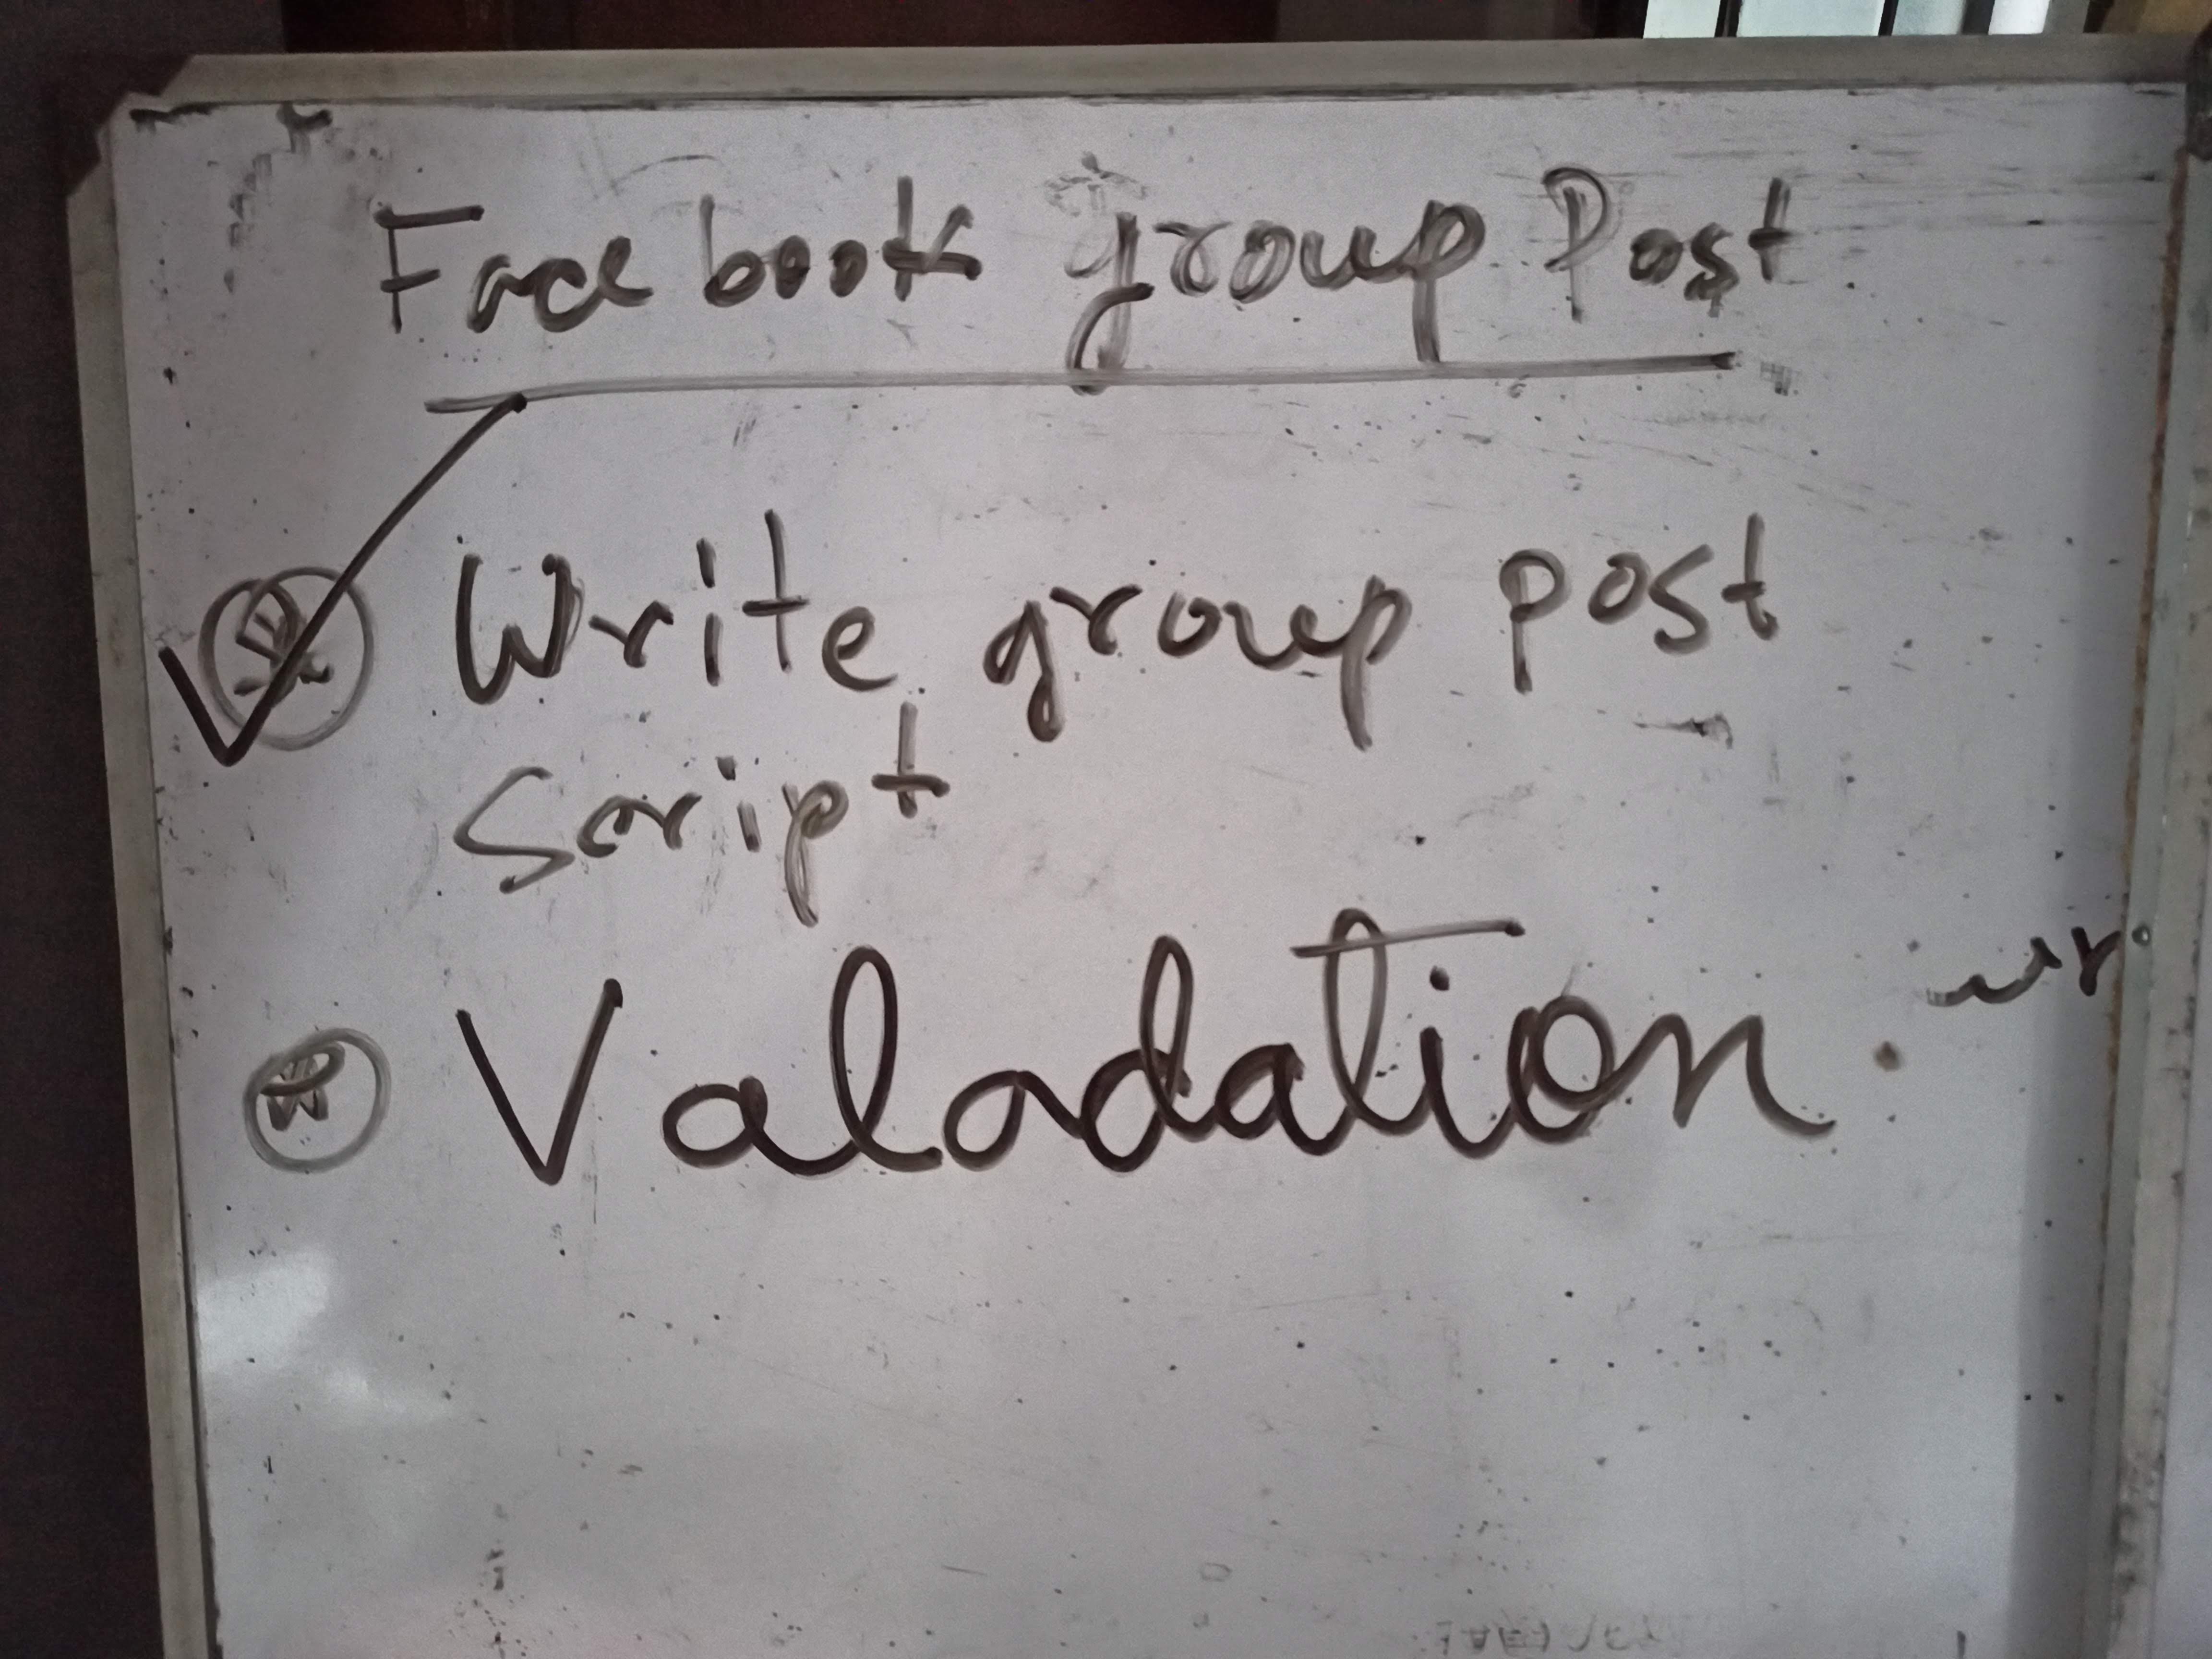 Facebook group Post
Write group post
Script
Valadation.
wr